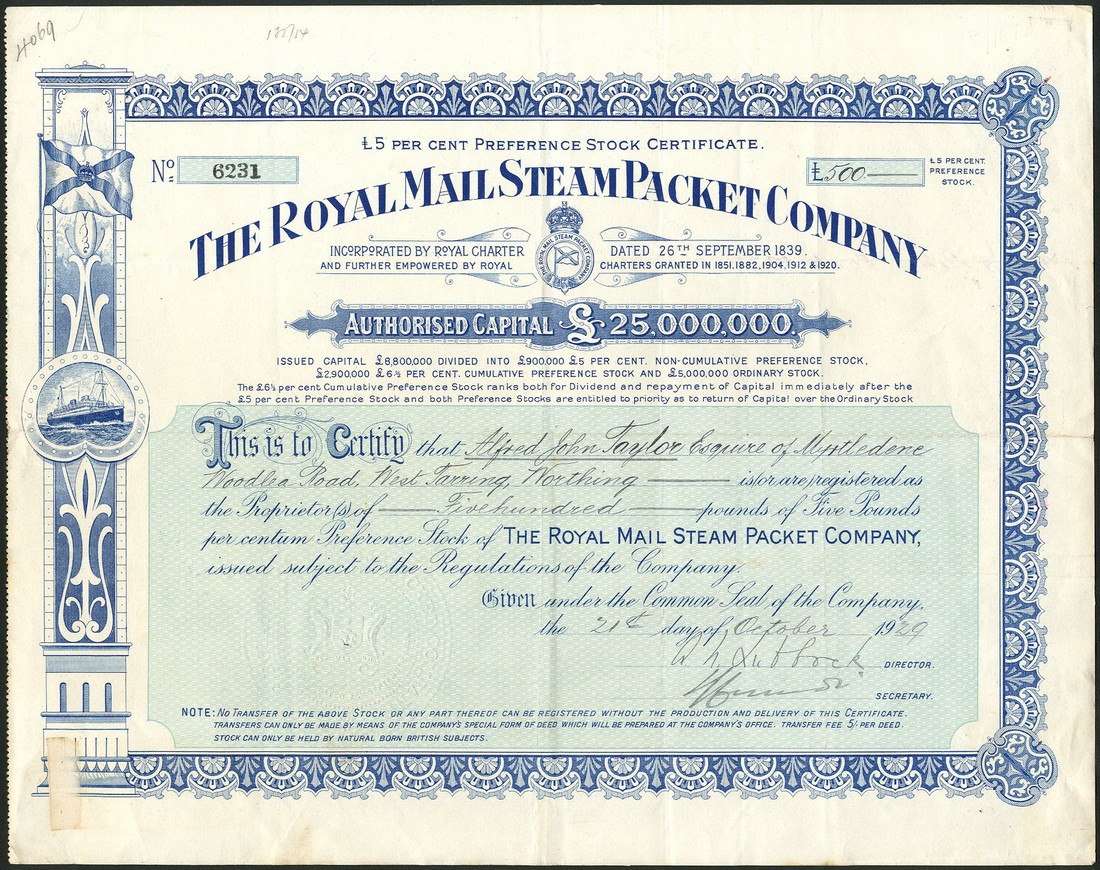 4069
£5 PER CENT PREFERENCE STOCK CERTIFICATE.
Nº 6231
£500 —
£5 PER CENT.
PREFERENCE
STOCK.
THE ROYAL MAIL STEAM PACKET COMPANY
INCORPORATED BY ROYAL CHARTER DATED 26TH SEPTEMBER 1839.
AND FURTHER EMPOWERED BY ROYAL CHARTERS GRANTED IN 1851, 1882, 1904, 1912 & 1920.
THE ROYAL MAIL STEAM PACKET COMPANY
AUTHORISED CAPITAL £25,000,000.
ISSUED CAPITAL £8,800,000 DIVIDED INTO £900,000 £5 PER CENT. NON-CUMULATIVE PREFERENCE STOCK,
£2,900,000 £6½ PER CENT. CUMULATIVE PREFERENCE STOCK AND £5,000,000 ORDINARY STOCK.
The £6½ per cent Cumulative Preference Stock ranks both for Dividend and repayment of Capital immediately after the
£5 per cent Preference Stock and both Preference Stocks are entitled to priority as to return of Capital over the Ordinary Stock
This is to Certify that Alfred John Taylor Esquire of Myrtledene
Woodlea Road, West Tarring, Worthing — is/or are/registered as
the Proprietor(s) of — Fivehundred — pounds of Five Pounds
per centum Preference Stock of THE ROYAL MAIL STEAM PACKET COMPANY,
issued subject to the Regulations of the Company.
Given under the Common Seal of the Company,
the 21st day of October 1929
DIRECTOR.
SECRETARY.
NOTE: NO TRANSFER OF THE ABOVE STOCK OR ANY PART THEREOF CAN BE REGISTERED WITHOUT THE PRODUCTION AND DELIVERY OF THIS CERTIFICATE.
TRANSFERS CAN ONLY BE MADE BY MEANS OF THE COMPANY'S SPECIAL FORM OF DEED WHICH WILL BE PREPARED AT THE COMPANY'S OFFICE. TRANSFER FEE 5/- PER DEED.
STOCK CAN ONLY BE HELD BY NATURAL BORN BRITISH SUBJECTS.